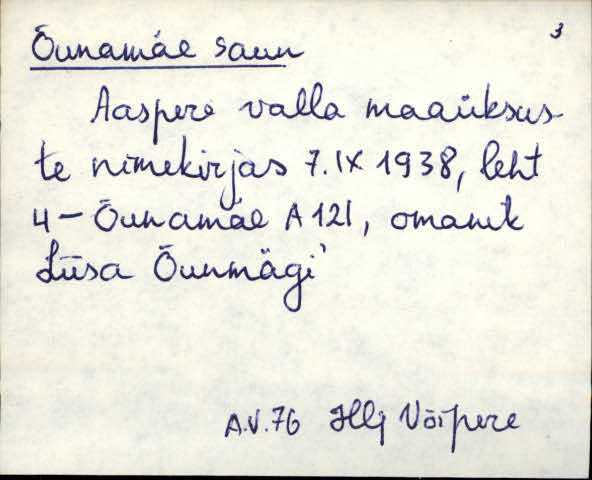 3
Õunamäe saun
Aaspere valla maaüksus-
te nimekirjas 7.IX 1938, leht
4 – Õunamäe A 121, omanik
Liisa Õunmägi
A.V.76 Illi Võipere